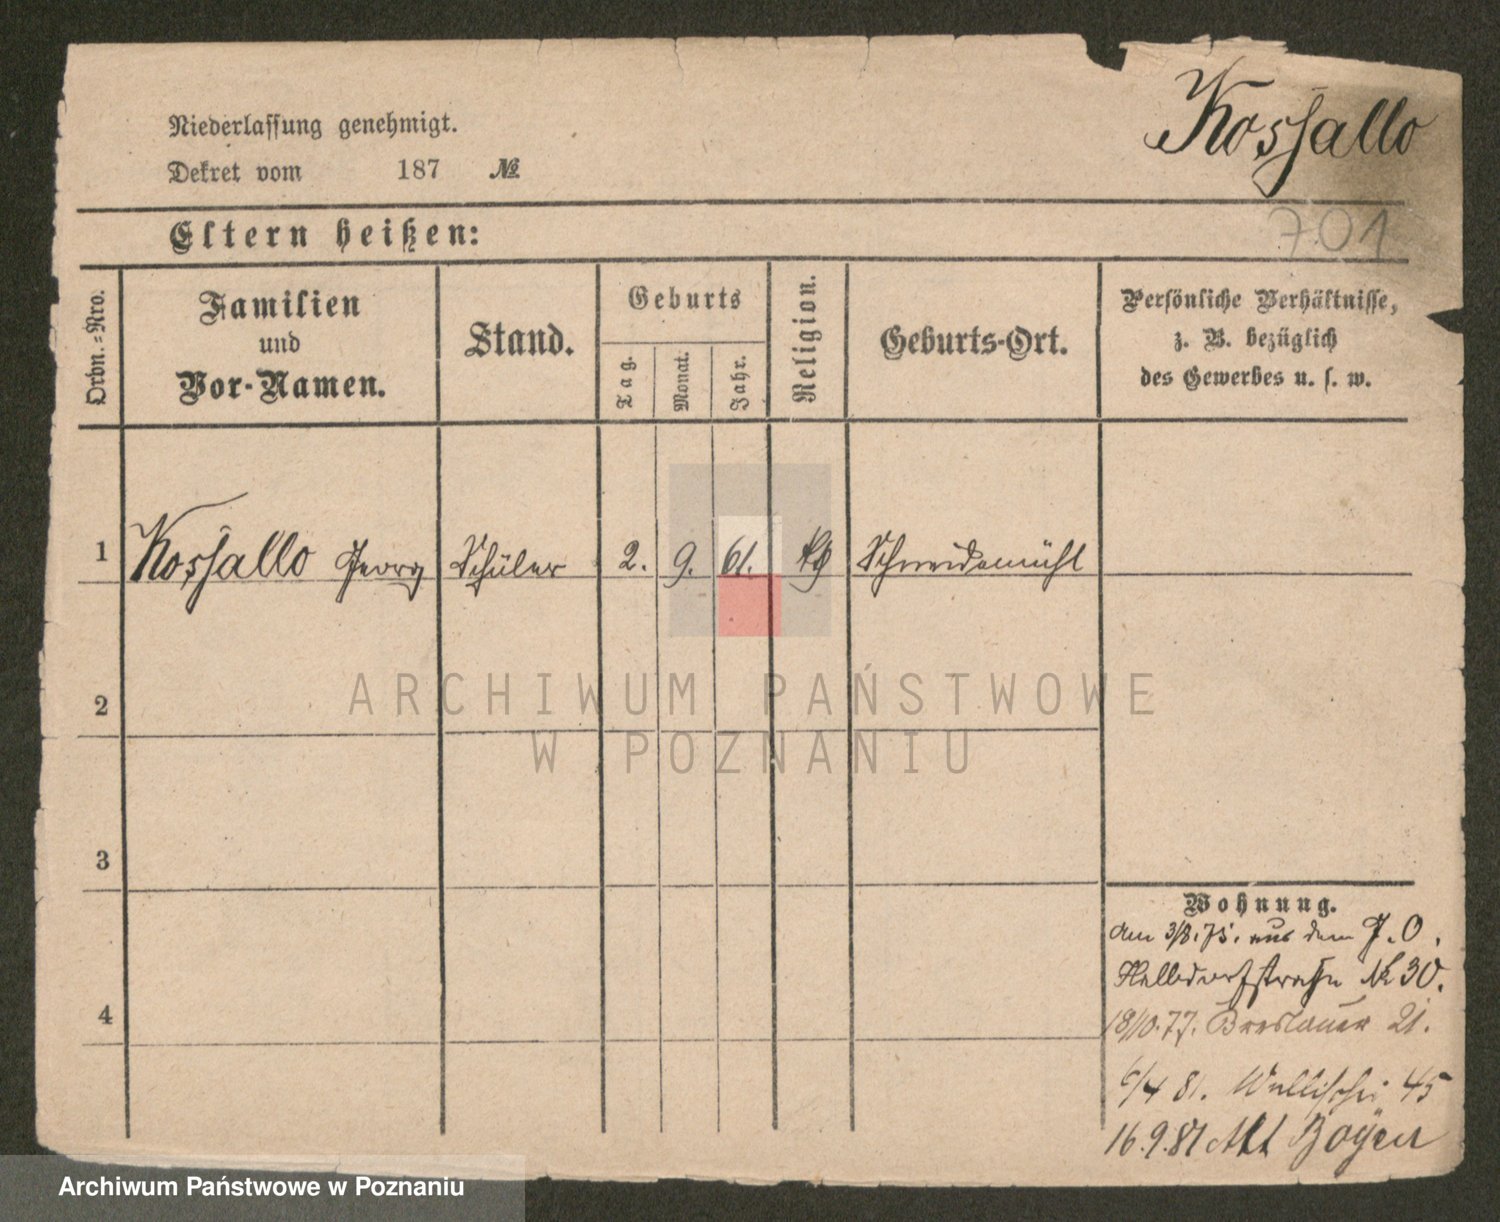 Kossallo
Niederlassung genehmigt.
Dekret vom 187 №
701
Eltern heißen:
Ordn.-Nro.
Familien
und
Vor-Namen.
Stand.
Geburts
Tag.
Monat.
Jahr.
Religion.
Geburts-Ort.
Persönliche Verhältnisse,
z. B. bezüglich
des Gewerbes u. s. w.
1 Kossallo Georg Schüler 2. 9. 61. Schneidemühl
2
3
4
Wohnung.
am 3/8.75. aus dem J.O.
№ 30.
18/10.77. Breslauer 21.
6/4 81. Wallischei 45
16.9.81 Alt Boyen
ARCHIWUM PAŃSTWOWE
W POZNANIU
Archiwum Państwowe w Poznaniu